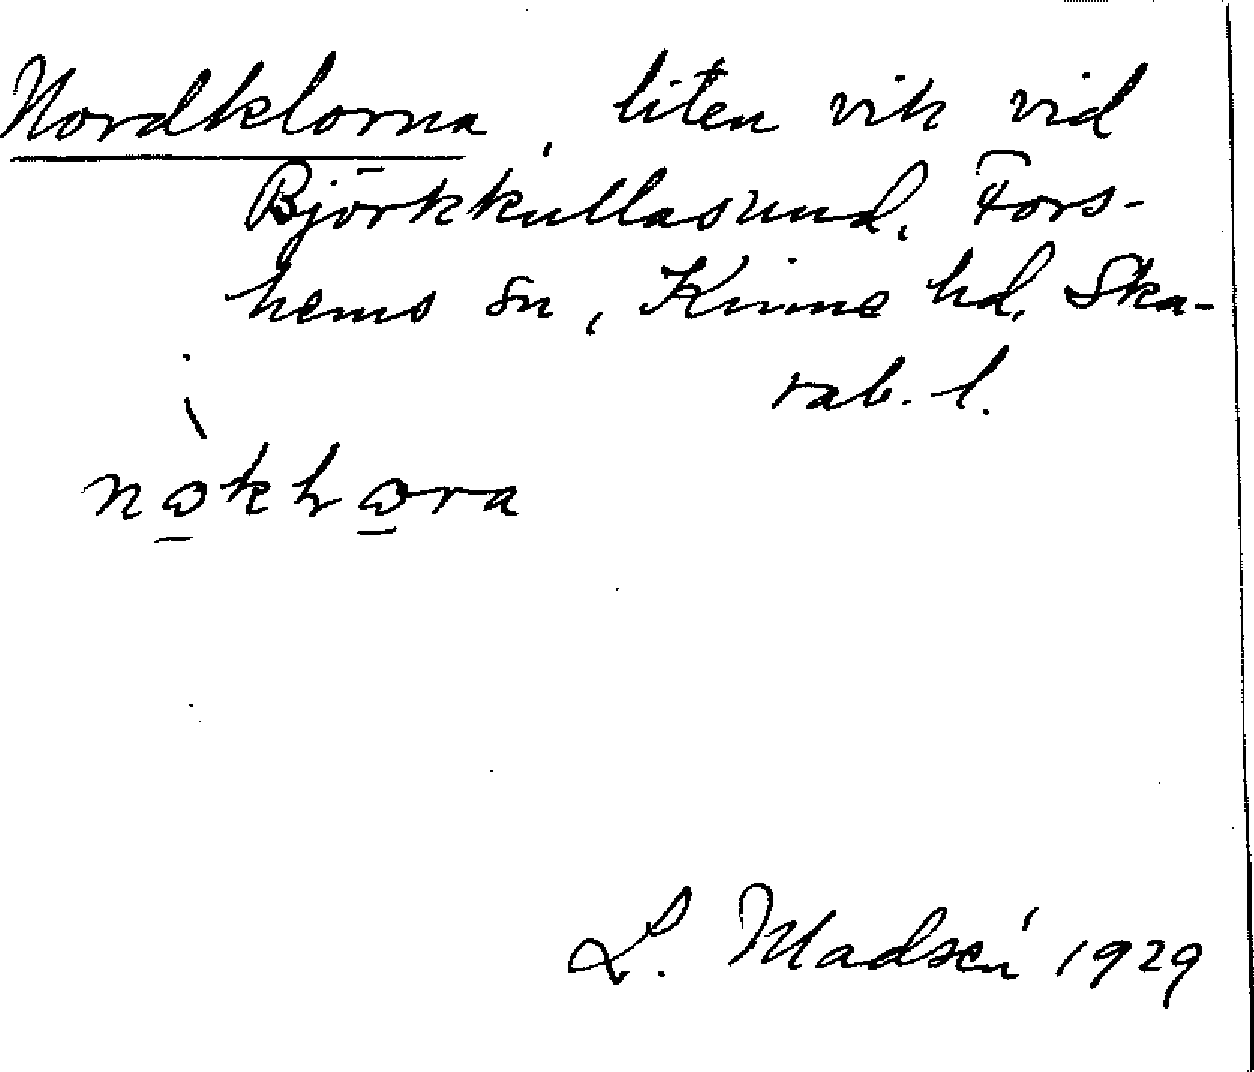 Nordklorna, liten vik vid
Björkkullasund, Fors-
hems sn, Kinne hd, Ska-
rab. l.
L. Madsén 1929